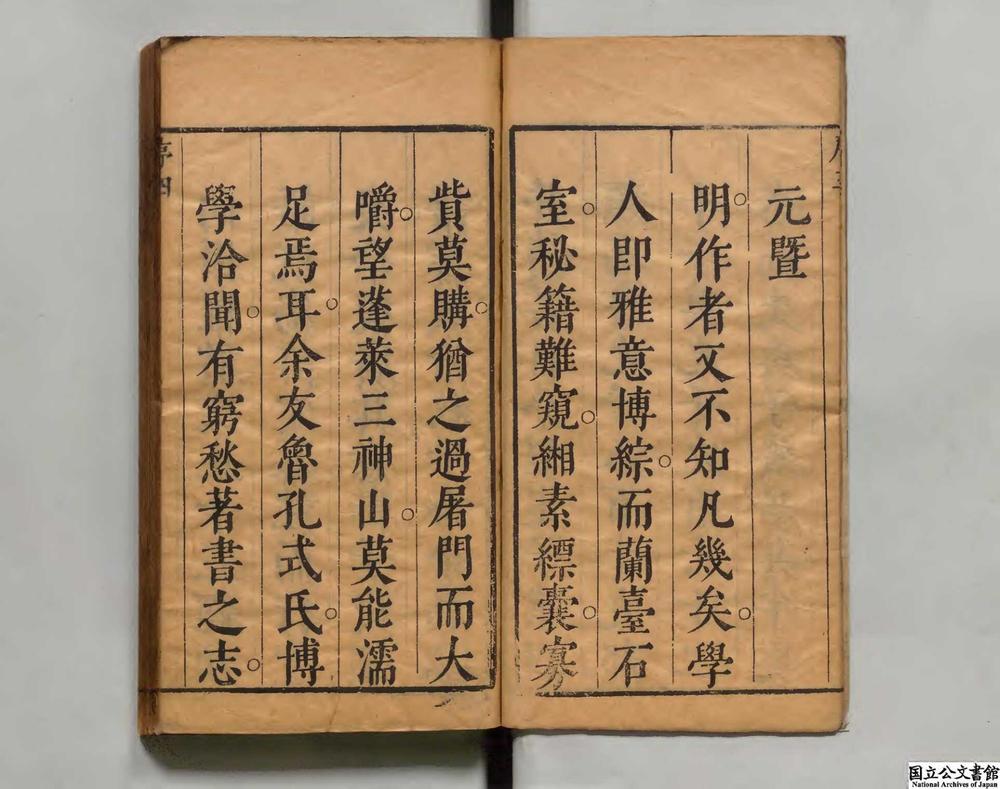 序三
元暨
明作者又不知凡幾矣學
人即雅意博綜而蘭臺石
室秘籍難窺緗素縹囊寡
貲莫購猶之過屠門而大
嚼望蓬萊三神山莫能濡
足焉耳余友魯孔式氏博
學洽聞有窮愁著書之志
序四
国立公文書館
National Archives of Japan